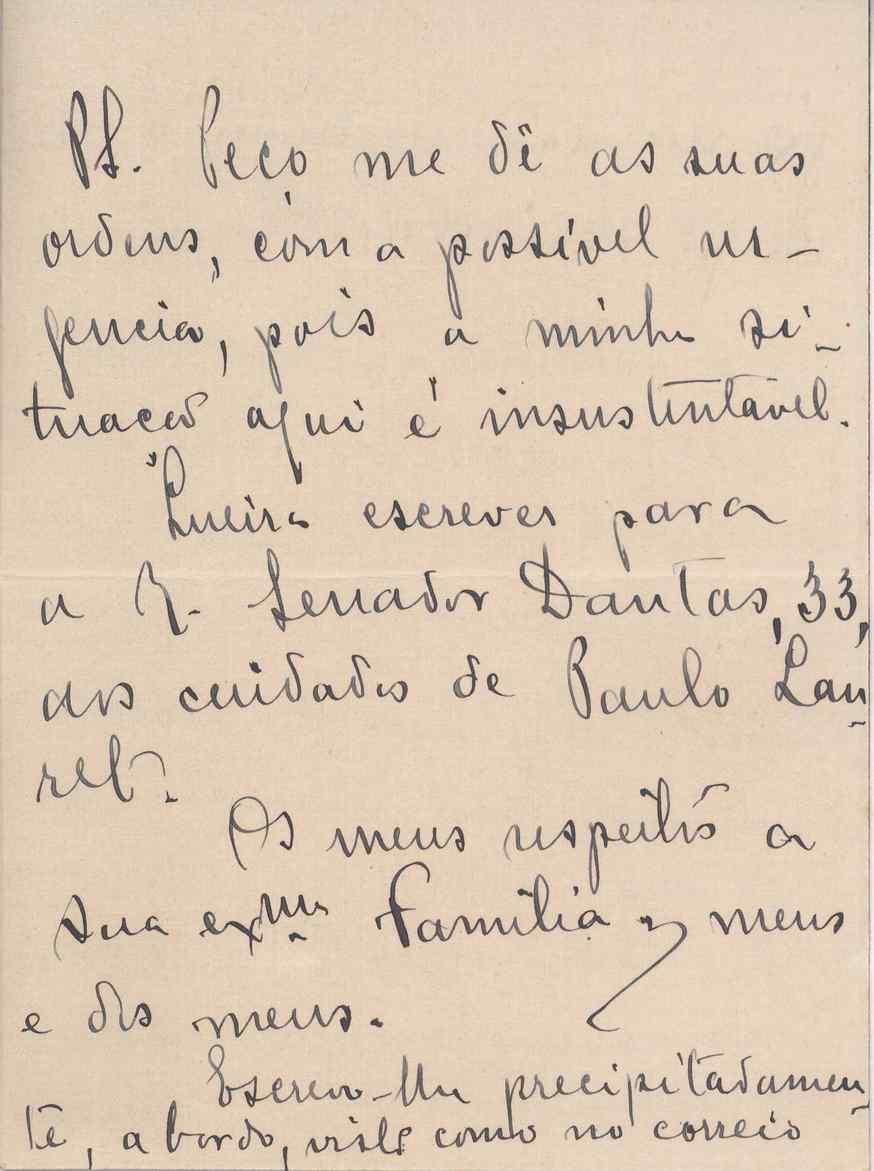 PS. Peço me dê as suas
ordens, com a possível ur-
gencia, pois a minha si-
tuação aqui é insustentável.
Queira escrever para
a R. Senador Dantas, 33,
aos cuidados de Paulo Lau-
ret.
Os meus respeitos a
sua exma Familia, meus
e dos meus.
Escrevo-lhe precipitadamen-
te, a bordo, visto como no correio